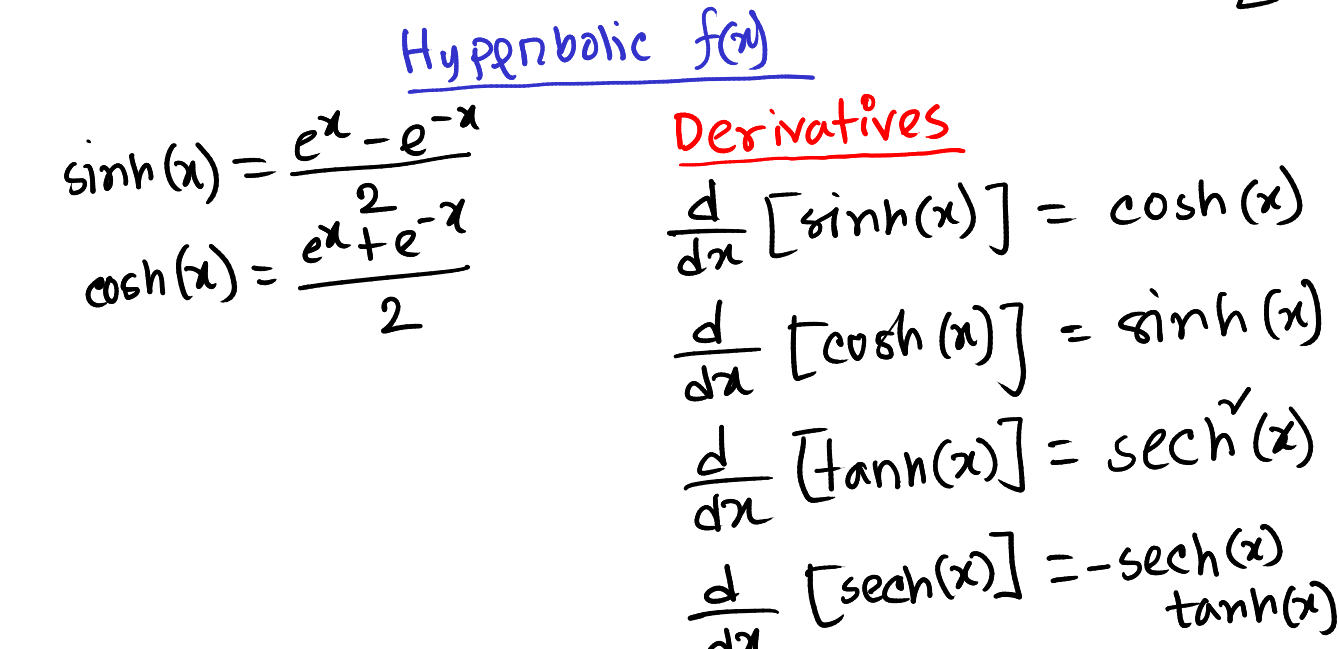 Hyperbolic f(x)
sinh(x) = (e^x - e^-x)/2
cosh(x) = (e^x + e^-x)/2
Derivatives
d/dx [sinh(x)] = cosh(x)
d/dx [cosh(x)] = sinh(x)
d/dx [tanh(x)] = sech²(x)
d/dx [sech(x)] = -sech(x)
tanh(x)